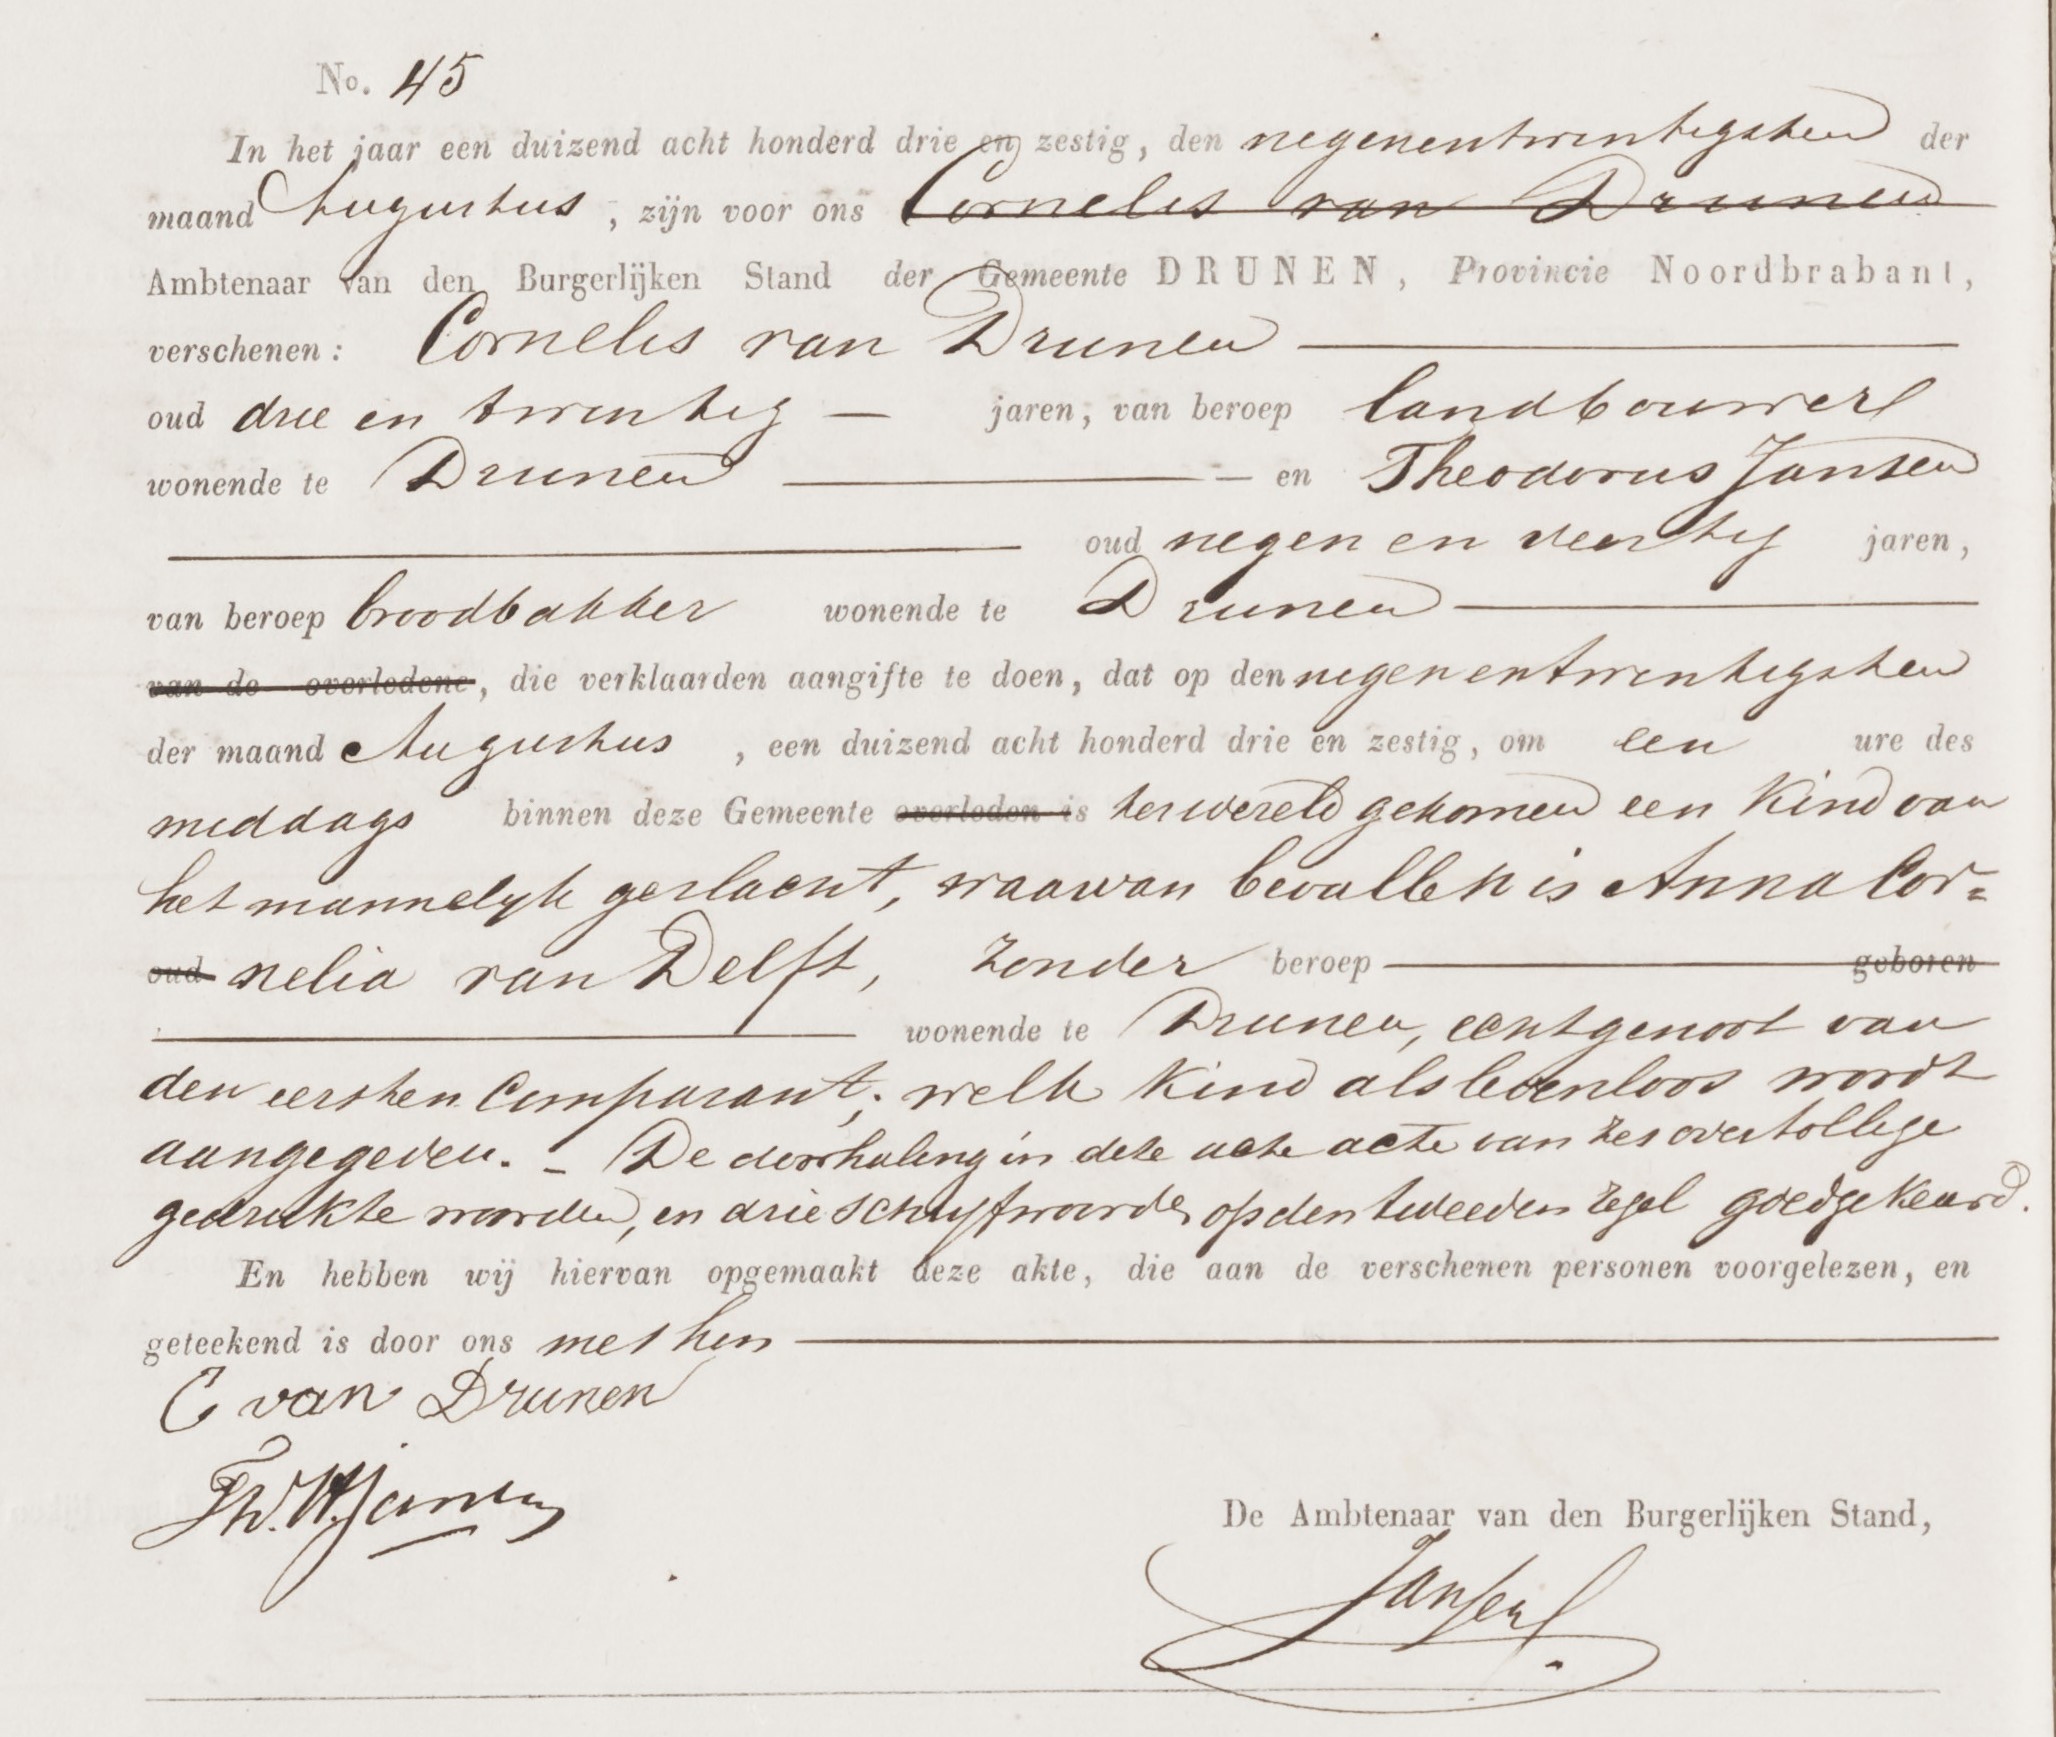 No. 45
In het jaar een duizend acht honderd drie en zestig, den negenentwintigsten der
maand Augustus, zijn voor ons Cornelis van Drunen
Ambtenaar van den Burgerlijken Stand der Gemeente DRUNEN, Provincie Noordbrabant,
verschenen: Cornelis van Drunen
oud drie en twintig — jaren, van beroep landbouwer
wonende te Drunen — en Theodorus Jansen
oud negen en veertig jaren,
van beroep broodbakker wonende te Drunen
van de overledene, die verklaarden aangifte te doen, dat op den negenentwintigsten
der maand Augustus, een duizend acht honderd drie en zestig, om een ure des
middags binnen deze Gemeente overleden is ter wereld gekomen een Kind van
het mannelyk geslacht, waarvan bevallen is Anna Cor=
oud nelia van Delft, zonder beroep geboren
wonende te Drunen, echtgenoot van
den eersten Comparant; welk Kind als levenloos wordt
aangegeven. – De doorhaling in deze acte acte van zes overtollige
gedrukte woorden, en drie schryfwoorden op den tweeden regel goedgekeurd.
En hebben wij hiervan opgemaakt deze akte, die aan de verschenen personen voorgelezen, en
geteekend is door ons met hen
C van Drunen
Th. H. Jansen
De Ambtenaar van den Burgerlijken Stand,
Jansen